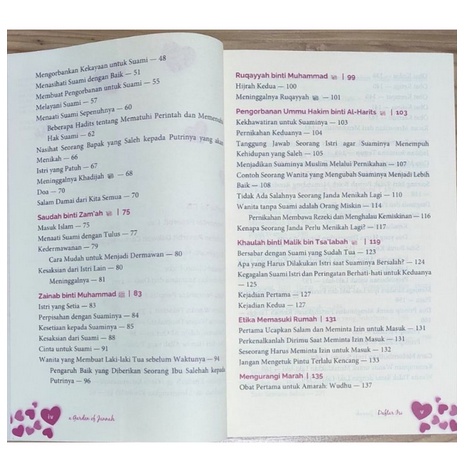 Mengorbankan Kekayaan untuk Suami — 48
Menasihati Suami dengan Baik — 51
Membuat Pengorbanan untuk Suami — 55
Melayani Suami — 57
Menaati Suami Sepenuhnya — 60
Beberapa Hadits tentang Mematuhi Perintah dan Memenuhi
Hak Suami — 62
Nasihat Seorang Bapak yang Saleh kepada Putrinya yang akan
Menikah — 66
Istri yang Patuh — 67
Meninggalnya Khadijah — 68
Doa — 70
Salam Damai dari Kita Semua — 70
Saudah binti Zam'ah | 75
Masuk Islam — 75
Menaati Suami dengan Tulus — 77
Kedermawanan — 79
Cara Mudah untuk Menjadi Dermawan — 80
Kesaksian dari Istri Lain — 80
Meninggalnya — 81
Zainab binti Muhammad | 83
Istri yang Setia — 83
Perpisahan dengan Suaminya — 84
Kesetiaan kepada Suaminya — 85
Kesaksian dari Suami — 88
Cinta untuk Suami — 91
Wanita yang Membuat Laki-laki Tua sebelum Waktunya — 94
Pengaruh Baik yang Diberikan Seorang Ibu Salehah kepada
Putrinya — 96
a Garden of Jannah
Ruqayyah binti Muhammad | 99
Hijrah Kedua — 100
Meninggalnya Ruqayyah — 101
Pengorbanan Ummu Hakim binti Al-Harits | 103
Kekhawatiran untuk Suaminya — 103
Pernikahan Keduanya — 104
Tanggung Jawab Seorang Istri agar Suaminya Menempuh
Kehidupan yang Saleh — 105
Menjadikan Suaminya Muslim Melalui Pernikahan — 107
Contoh Seorang Wanita yang Mengubah Suaminya Menjadi Lebih
Baik — 108
Tidak Ada Salahnya Seorang Janda Menikah Lagi — 110
Wanita tanpa Suami adalah Orang Miskin — 114
Pernikahan Membawa Rezeki dan Menghalau Kemiskinan — 116
Kenapa Seorang Janda Perlu Menikah Lagi? — 117
Khaulah binti Malik bin Tsa'labah | 119
Bersabar dengan Suami yang Sudah Tua — 123
Apa yang Harus Dilakukan Istri saat Suaminya Bersalah? — 124
Kegagalan Suami Istri dan Peringatan Berhati-hati untuk Keduanya
— 125
Kejadian Pertama — 127
Kejadian Kedua — 127
Etika Memasuki Rumah | 131
Pertama Ucapkan Salam dan Meminta Izin untuk Masuk — 131
Perkenalkanlah Dirimu Saat Meminta Izin Masuk — 131
Seseorang Harus Meminta Izin untuk Masuk — 132
Jangan Mengetuk Pintu Terlalu Kencang — 133
Mengurangi Marah | 135
Obat Pertama untuk Amarah: Wudhu — 137
Daftar Isi